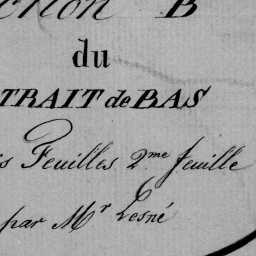 ction B
du
TRAIT de BAS
is Feuilles 2.me feuille
par Mr Lesné